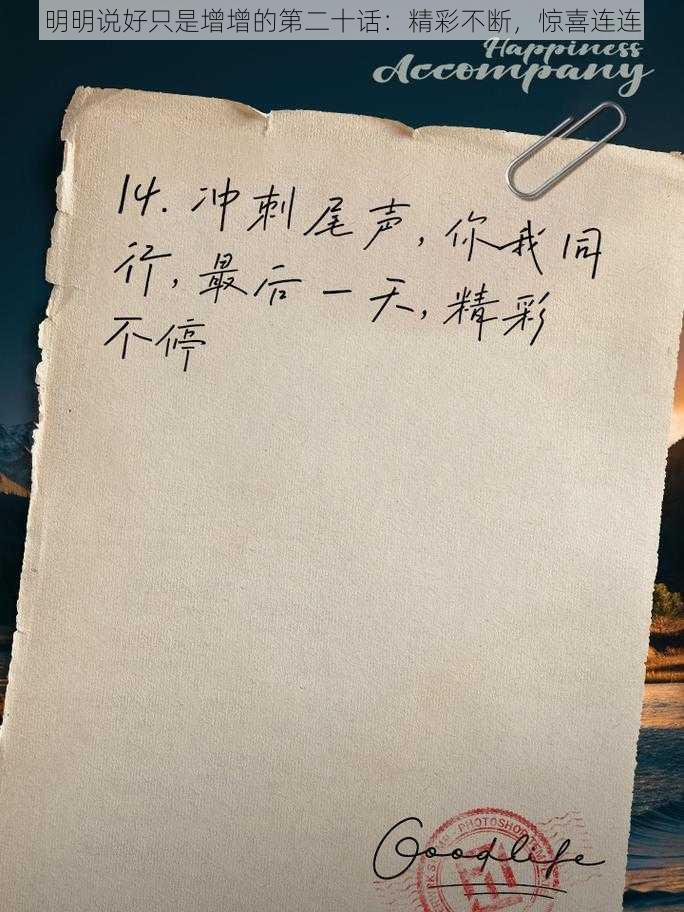 明明说好只是增增的第二十话：精彩不断，惊喜连连
Happiness
Accompany
14. 冲刺尾声，你我同
行，最后一天，精彩
不停
PHOTOSHOP
Goodlife